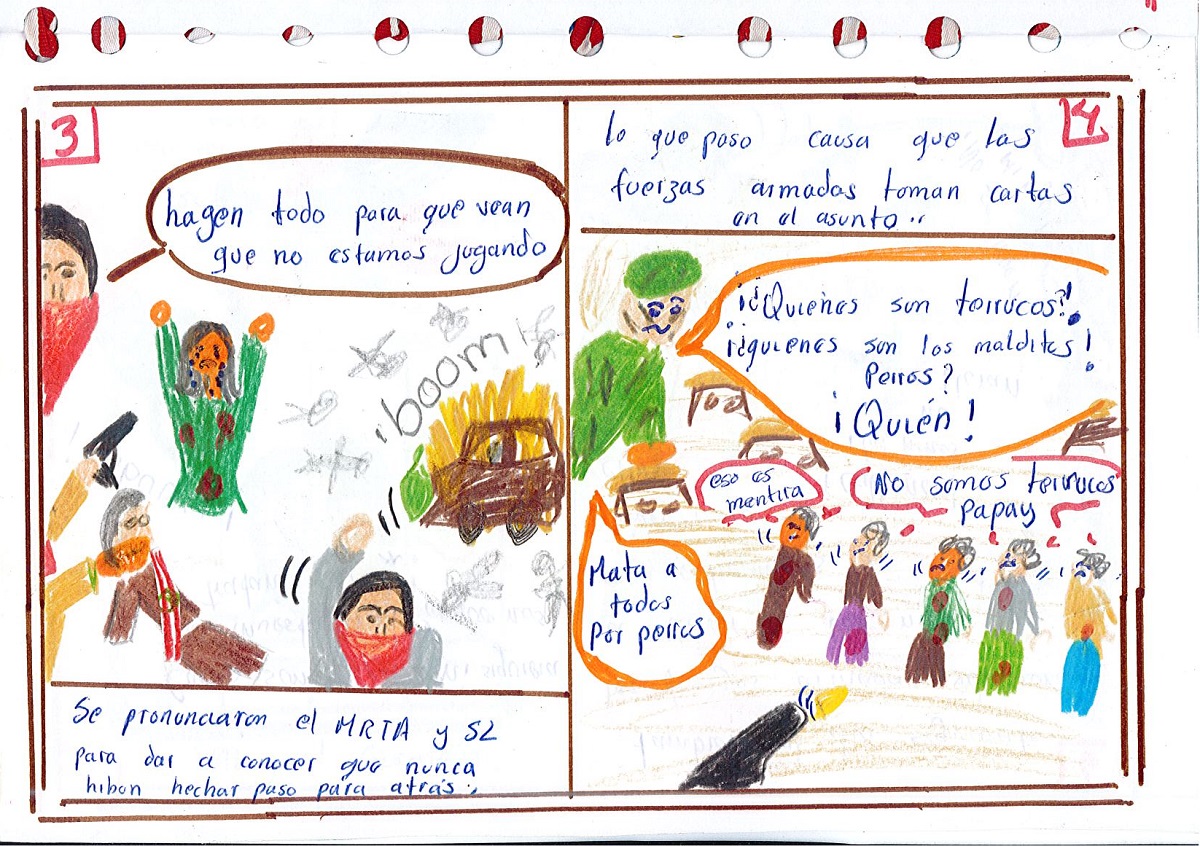 3
hagen todo para que vean
que no estamos jugando
¡boom!
Se pronunciaron el MRTA y SL
para dar a conocer que nunca
hiban hechar paso para atrás..
4
lo que paso causa que las
fuerzas armadas toman cartas
en el asunto..
¡¿Quienes son terrucos?!
¡¿quienes son los malditos
perros?!
¡Quién!
eso es
mentira
No somos terrucos
Papay
Mata a
todos
Por perros